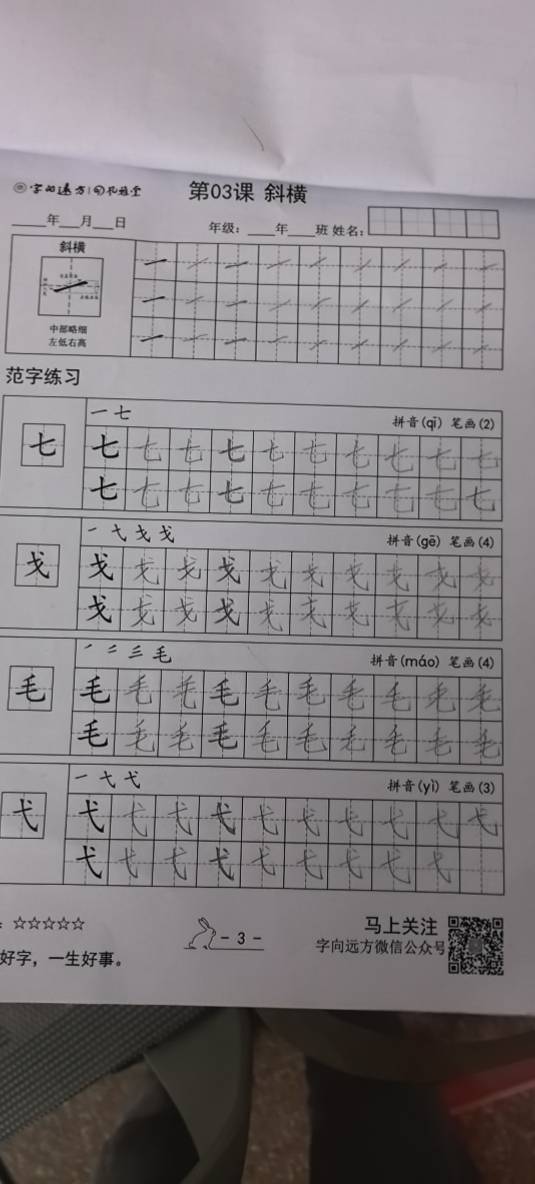 第03课 斜横
____年___月___日 年级：____年____班 姓名：
斜横
中部略细
左低右高
范字练习
一 七 拼音(qī) 笔画(2)
七 七 七 七 七 七 七 七 七 七 七
七 七 七 七 七 七 七 七 七 七
一 弋 戈 戈 拼音(gē) 笔画(4)
戈 戈 戈 戈 戈 戈 戈 戈 戈 戈 戈
戈 戈 戈 戈 戈 戈 戈 戈 戈 戈
毛 拼音(máo) 笔画(4)
毛 毛 毛 毛 毛 毛 毛 毛 毛 毛 毛
毛 毛 毛 毛 毛 毛 毛 毛 毛 毛
一 弋 弋 拼音(yì) 笔画(3)
弋 弋 弋 弋 弋 弋 弋 弋 弋 弋 弋
弋 弋 弋 弋 弋 弋 弋 弋 弋
☆☆☆☆☆
好字，一生好事。
- 3 -
马上关注
字向远方微信公众号